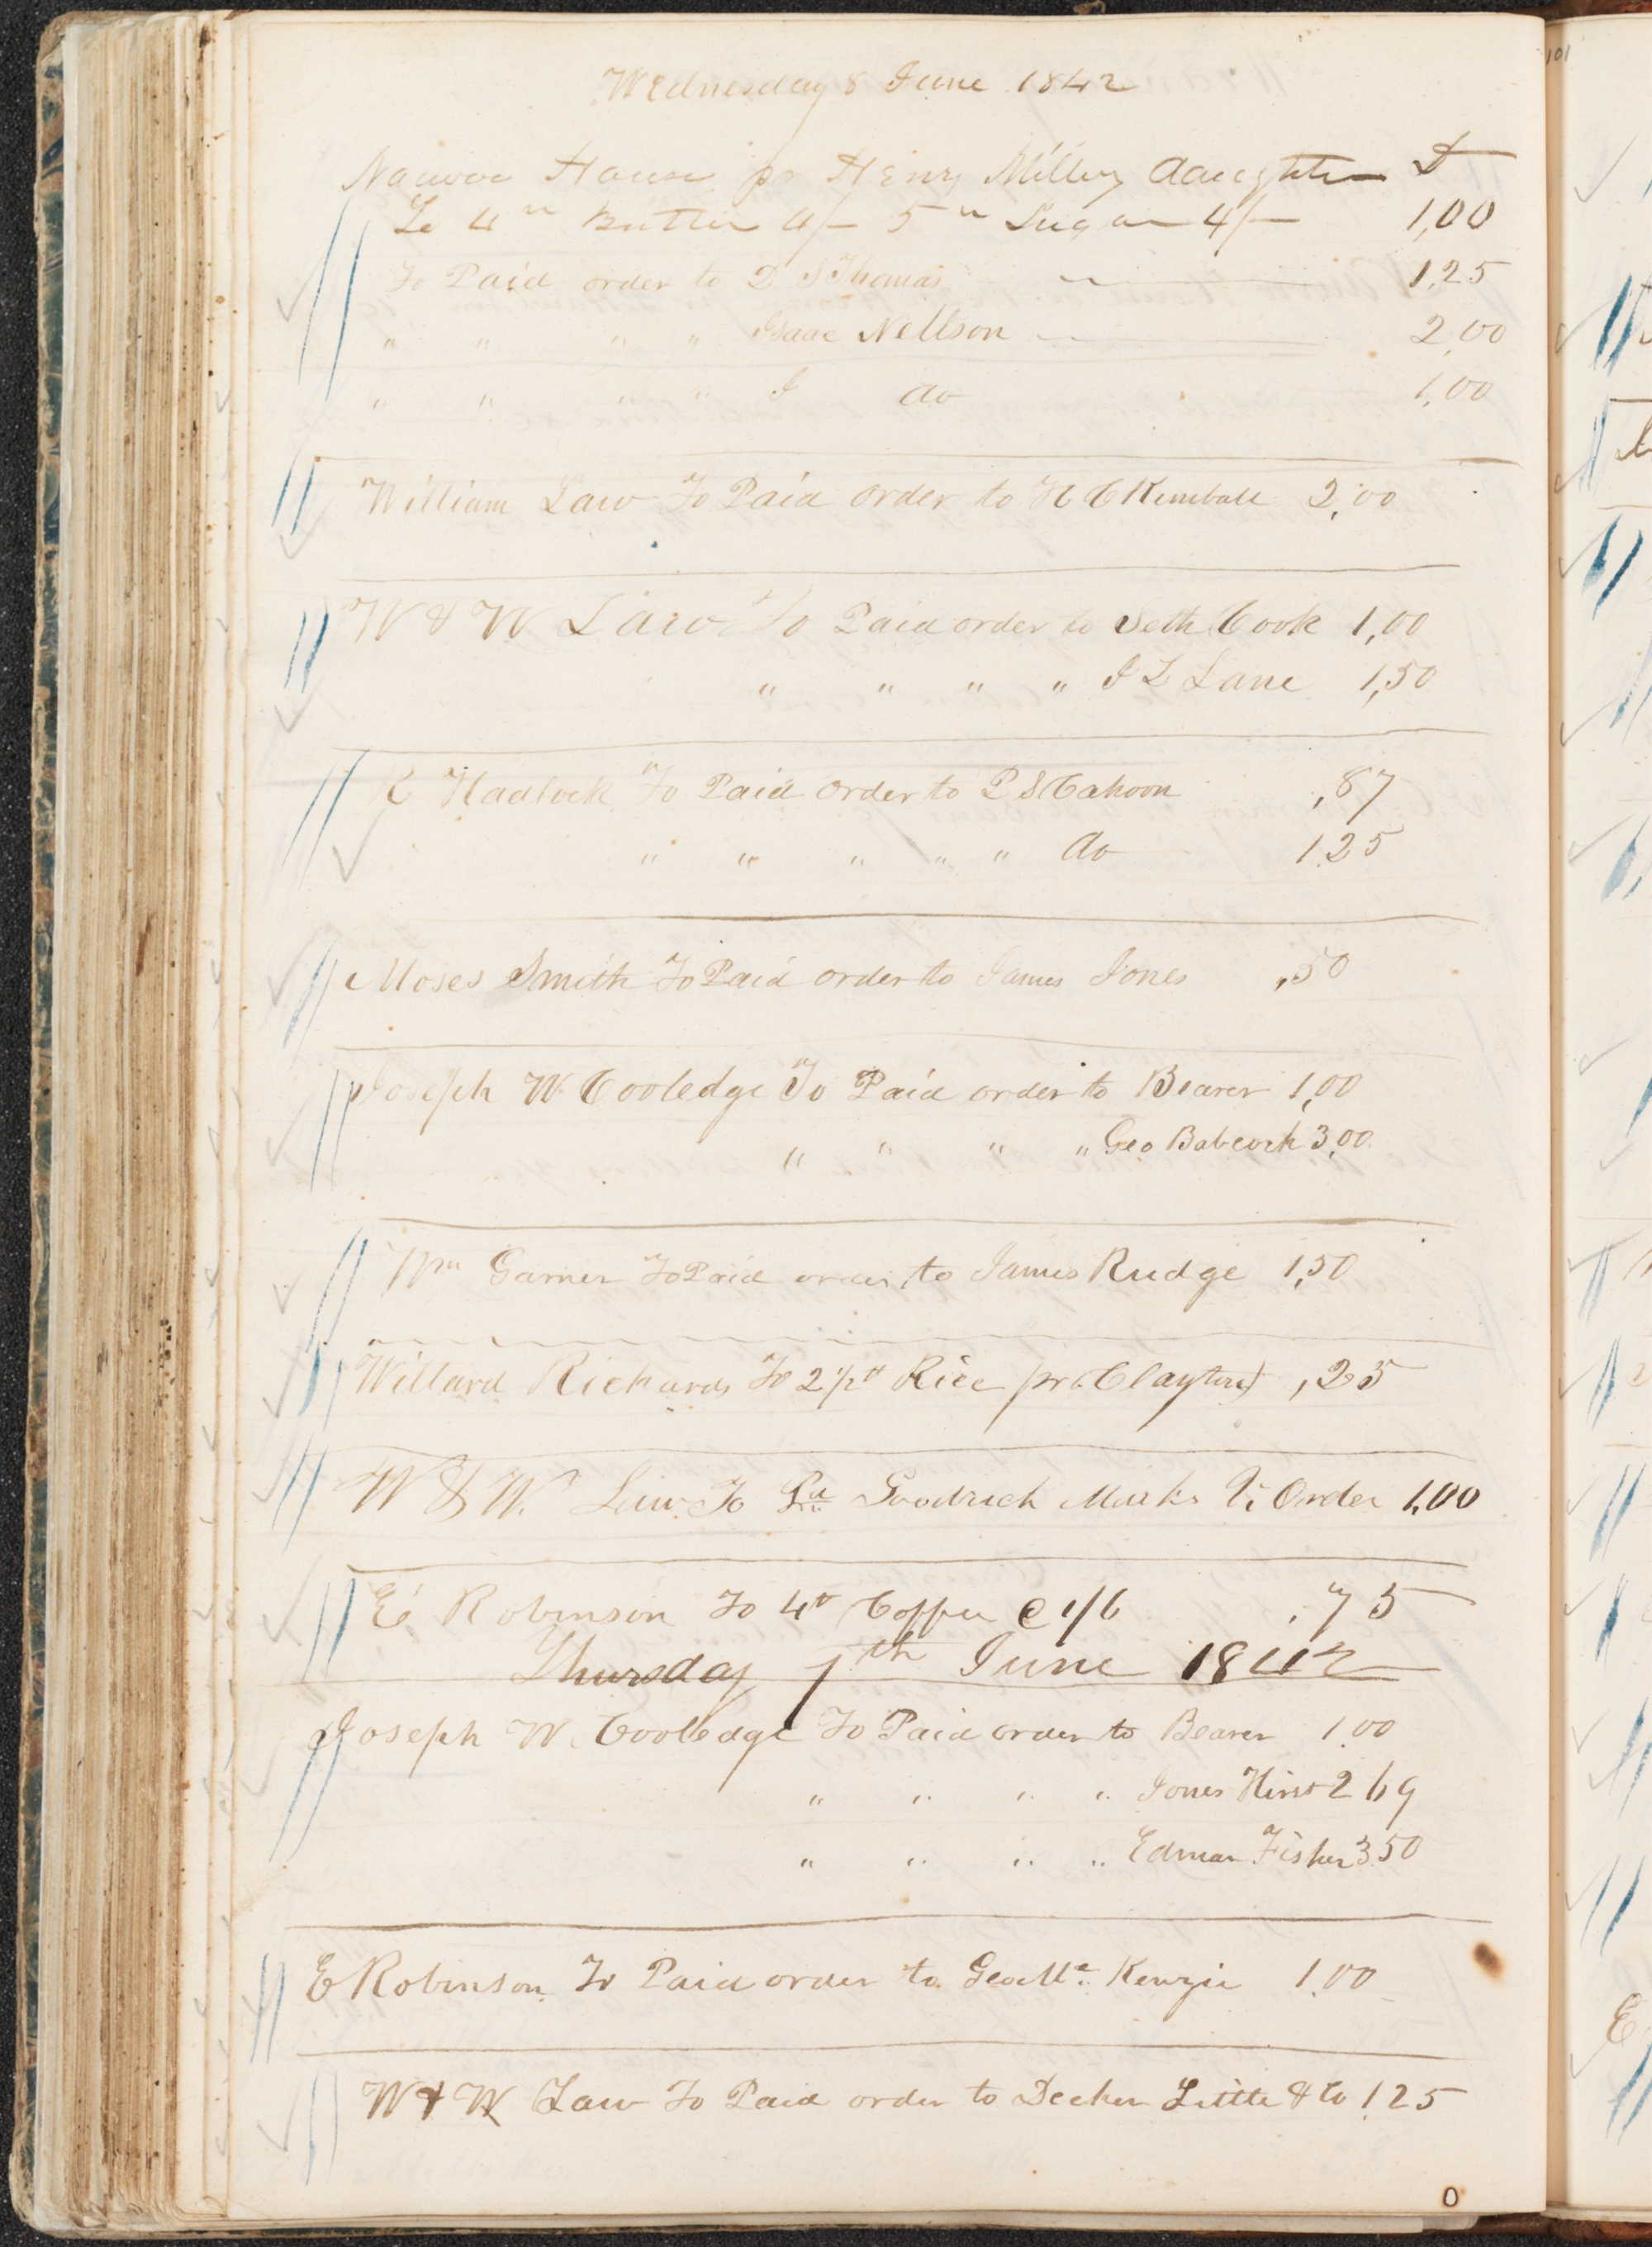 Wednesday 8 June 1842
Nauvoo House pr Henry Millers daughter D
To 4 " Butter 4/– 5 " Sugar 4/– 1,00
To Paid order to D S Thomas 1,25
" " " " Isaac Nellson 2,00
" " " " I do 1,00
William Law To Paid order to H C Kimball 2,00
W & W Law To Paid order to Seth Cook 1,00
" " " " I L Lane 1,50
C Hadlock To Paid order to P S Cahoon ,87
" " " " " do 1.25
Moses Smith To Paid order to James Jones ,50
Joseph W. Cooledge To Paid order to Bearer 1,00
" " " " Geo Babcock 3,00
Wm Garner To Paid order to James Rudge 1,50
Willard Richards To 2 1/2 # Rice (pr Clayton) ,25
W & W. Law To Pd Goodrich Marks Order 1,00
E. Robinson To 4 # Coffee @ 1/6 .75
Thursday 9th June 1842
Joseph W. Cooledge To Paid order to Bearer 1.00
" " " " Jones Hirst 2 69
" " " " Edman Fisher 3.50
E Robinson To Paid order to Geo Mc. Kenzie 1.00
W & W Law To Paid order to Decker Little & Co 1.25
101
0